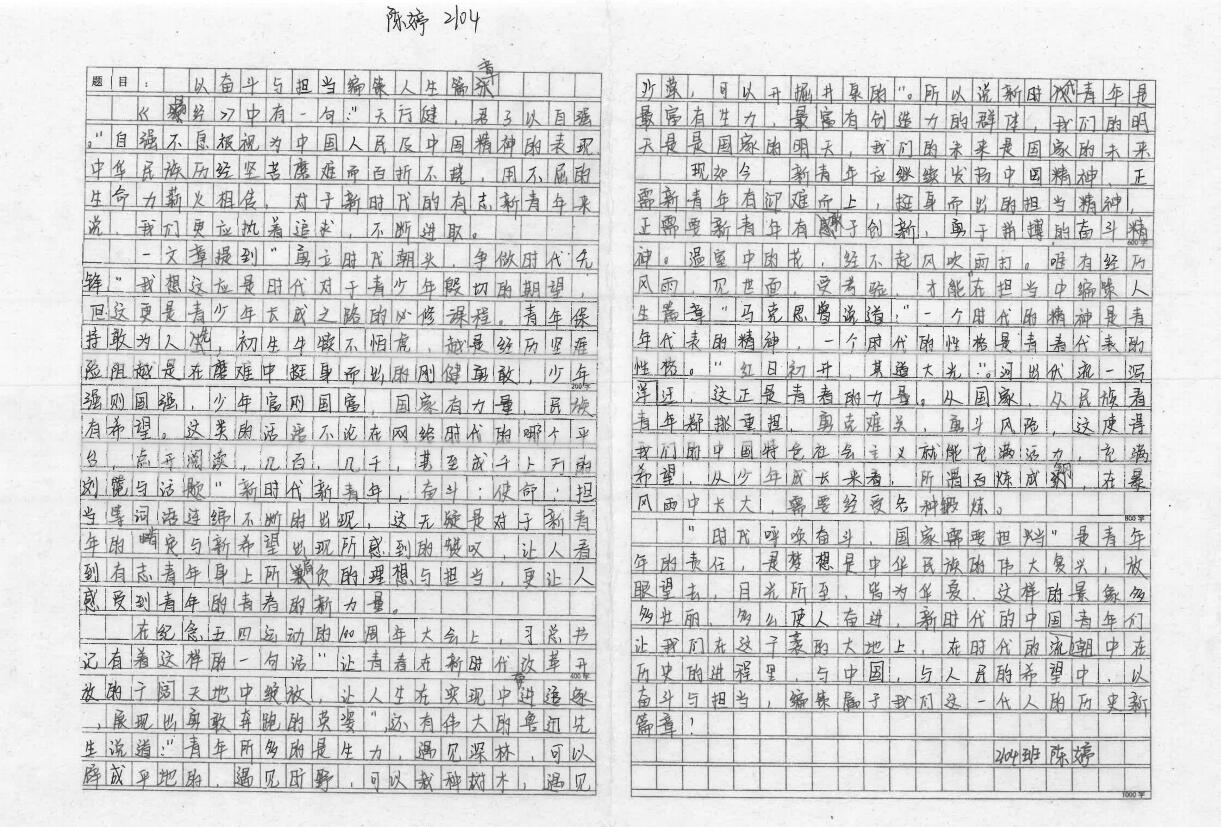 陈婷 2104
题目： 以奋斗与担当编集人生篇章
《易经》中有一句："天行健，君子以自强
。"自强不息被视为中国人民及中国精神的表现
中华民族历经坚苦磨难而百折不挠，用不屈的
生命力薪火相传，对于新时代的有志新青年来
说，我们更应执着追求，不断进取。
一文章提到"勇立时代朝头，争做时代先
锋"我想这应是时代对于青少年殷切的期望，
但这更是青少年大成之路的必修课程。青年保
持敢为人先，初生牛犊不怕虎，越是经历坚难
险阻越是在磨难中挺身而出的刚健勇敢，少年
200字
强则国强，少年富则国富，国家有力量，民族
有希望。这类的话语不论在网络时代的哪个平
台，点开阅读，几百，几千，甚至成千上万的
浏览与话题"新时代新青年，奋斗；使命；担
当等词语连绵不断的出现，这无疑是对于新青
年的肯定与新希望出现所感到的赞叹，让人看
到有志青年身上所肩负的理想与担当，更让人
感受到青年的青春的新力量。
在纪念五四运动的100周年大会上，习总书
记有着这样的一句话"让青春在新时代改革开
400字
放的广阔天地中绽放，让人生在实现中进追逐
，展现出勇敢奔跑的英姿"，还有伟大的鲁迅先
生说道："青年所多的是生力，遇见深林，可以
辟成平地的，遇见旷野，可以栽种树木，遇见
沙莫，可以开掘井泉的"。所以说新时代青年是
最富有生力，最富有创造力的群体，我们的明
天是是国家的明天，我们的未来是国家的未来
现如今，新青年应继续发扬中国精神，正
需新青年有迎难而上，挺身而出的担当精神，
正需要新青年有敢于创新，勇于拼搏的奋斗精
600字
神。温室中的花，经不起风吹雨打。唯有经历
风雨，见世面，受考验，才能在担当中编集人
生篇章"马克思曾说道："一个时代的精神是青
年代表的精神，一个时代的性格是青春代表的
性格。"红日初升，其道大光"。河出伏流一泻
洋汪，这正是青春的力量。从国家，从民族看
青年都挑重担，勇克难关，勇斗风险，这使得
我们的中国特色社会主义就能充满活力，充满
希望，从少年成长来看，所谓百炼成钢，在暴
风雨中长大，需要经受各种锻炼。
800字
"时代呼唤奋斗，国家需要担当"是青年
年的责任，是梦想是中华民族的伟大复兴，放
眼望去，目光所至，皆为华夏，这样的景象多
多壮丽，多么使人奋进，新时代的中国青年们
让我们在这广袤的大地上，在时代的流朝中在
历史的进程里，与中国，与人民的希望中，以
奋斗与担当，编集属于我们这一代人的历史新
篇章！
2104班 陈婷
1000字